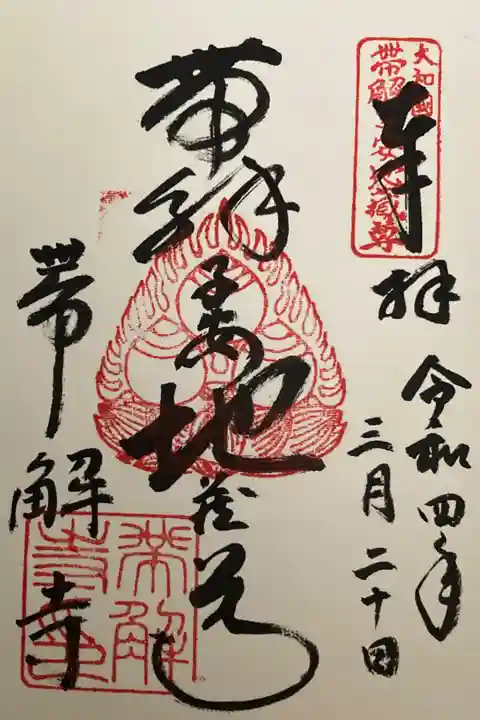 大和國
帯解子安地蔵尊
奉拝
令和四年
三月二十日
帯解子安地蔵尊
帯解寺
帯解寺印